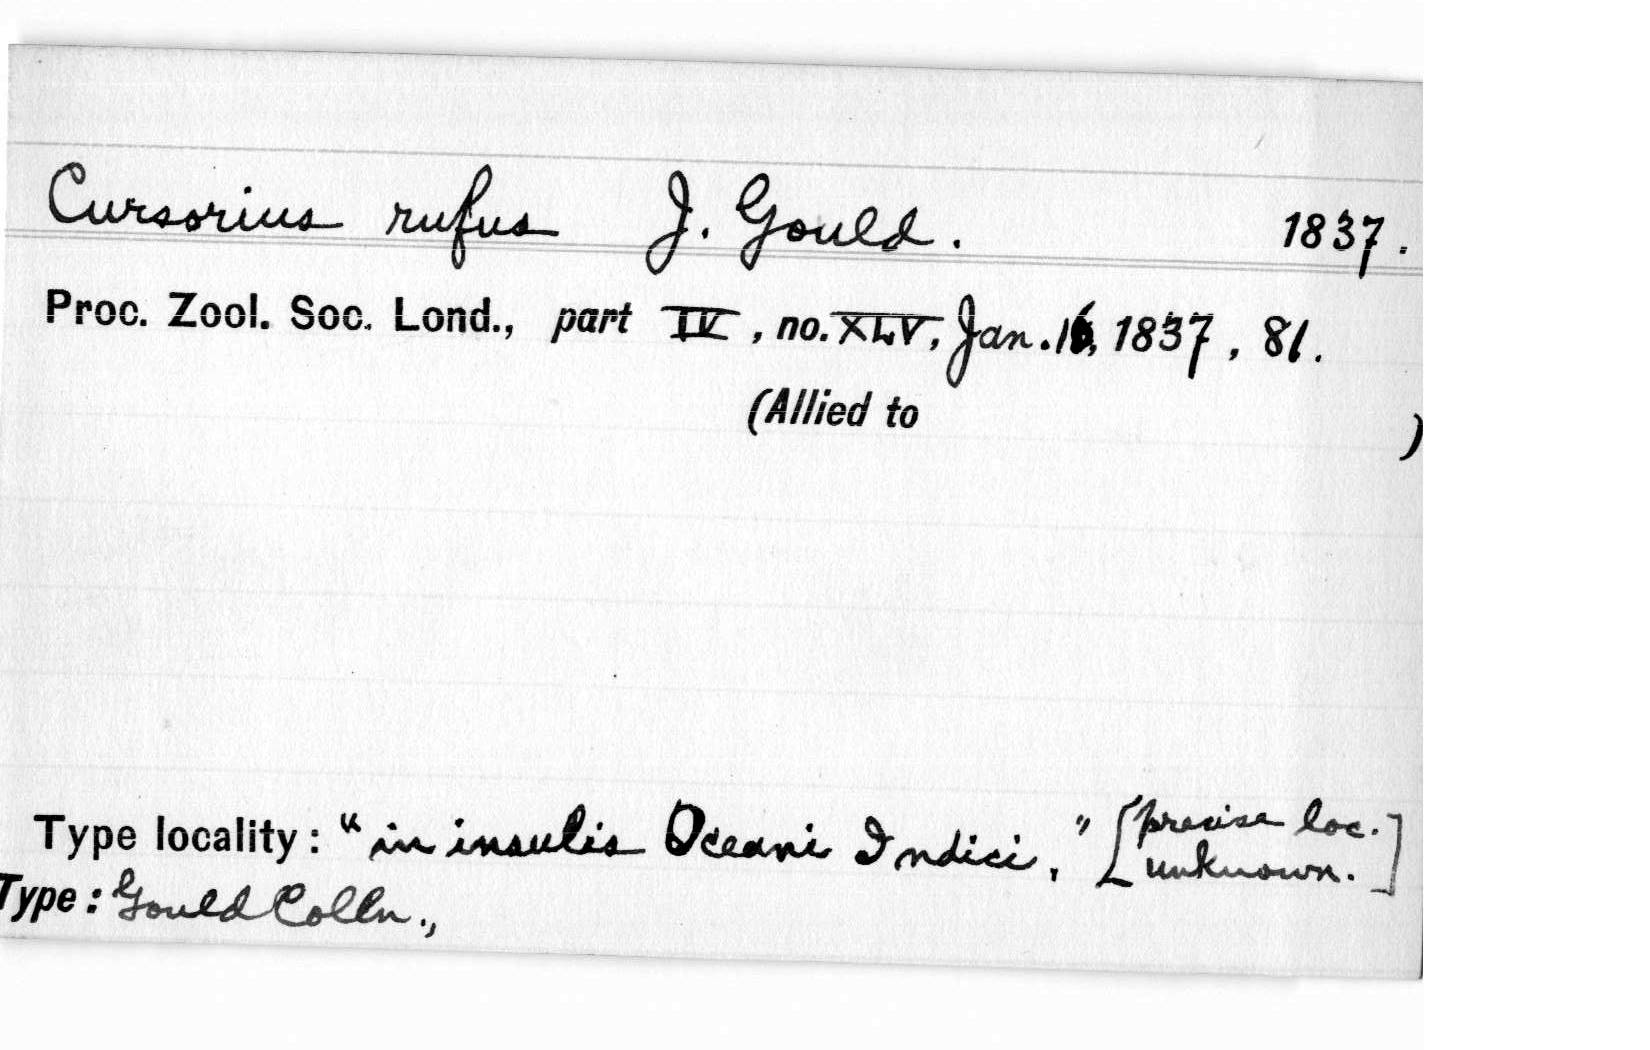 Cursorius rufus J. Gould. 1837.
Proc. Zool. Soc. Lond., part IV, no. XLV, Jan. 16, 1837, 81.
(Allied to )
Type locality: "in insulis Oceani Indici," [precise loc. unknown.]
Type: Gould Colln.,